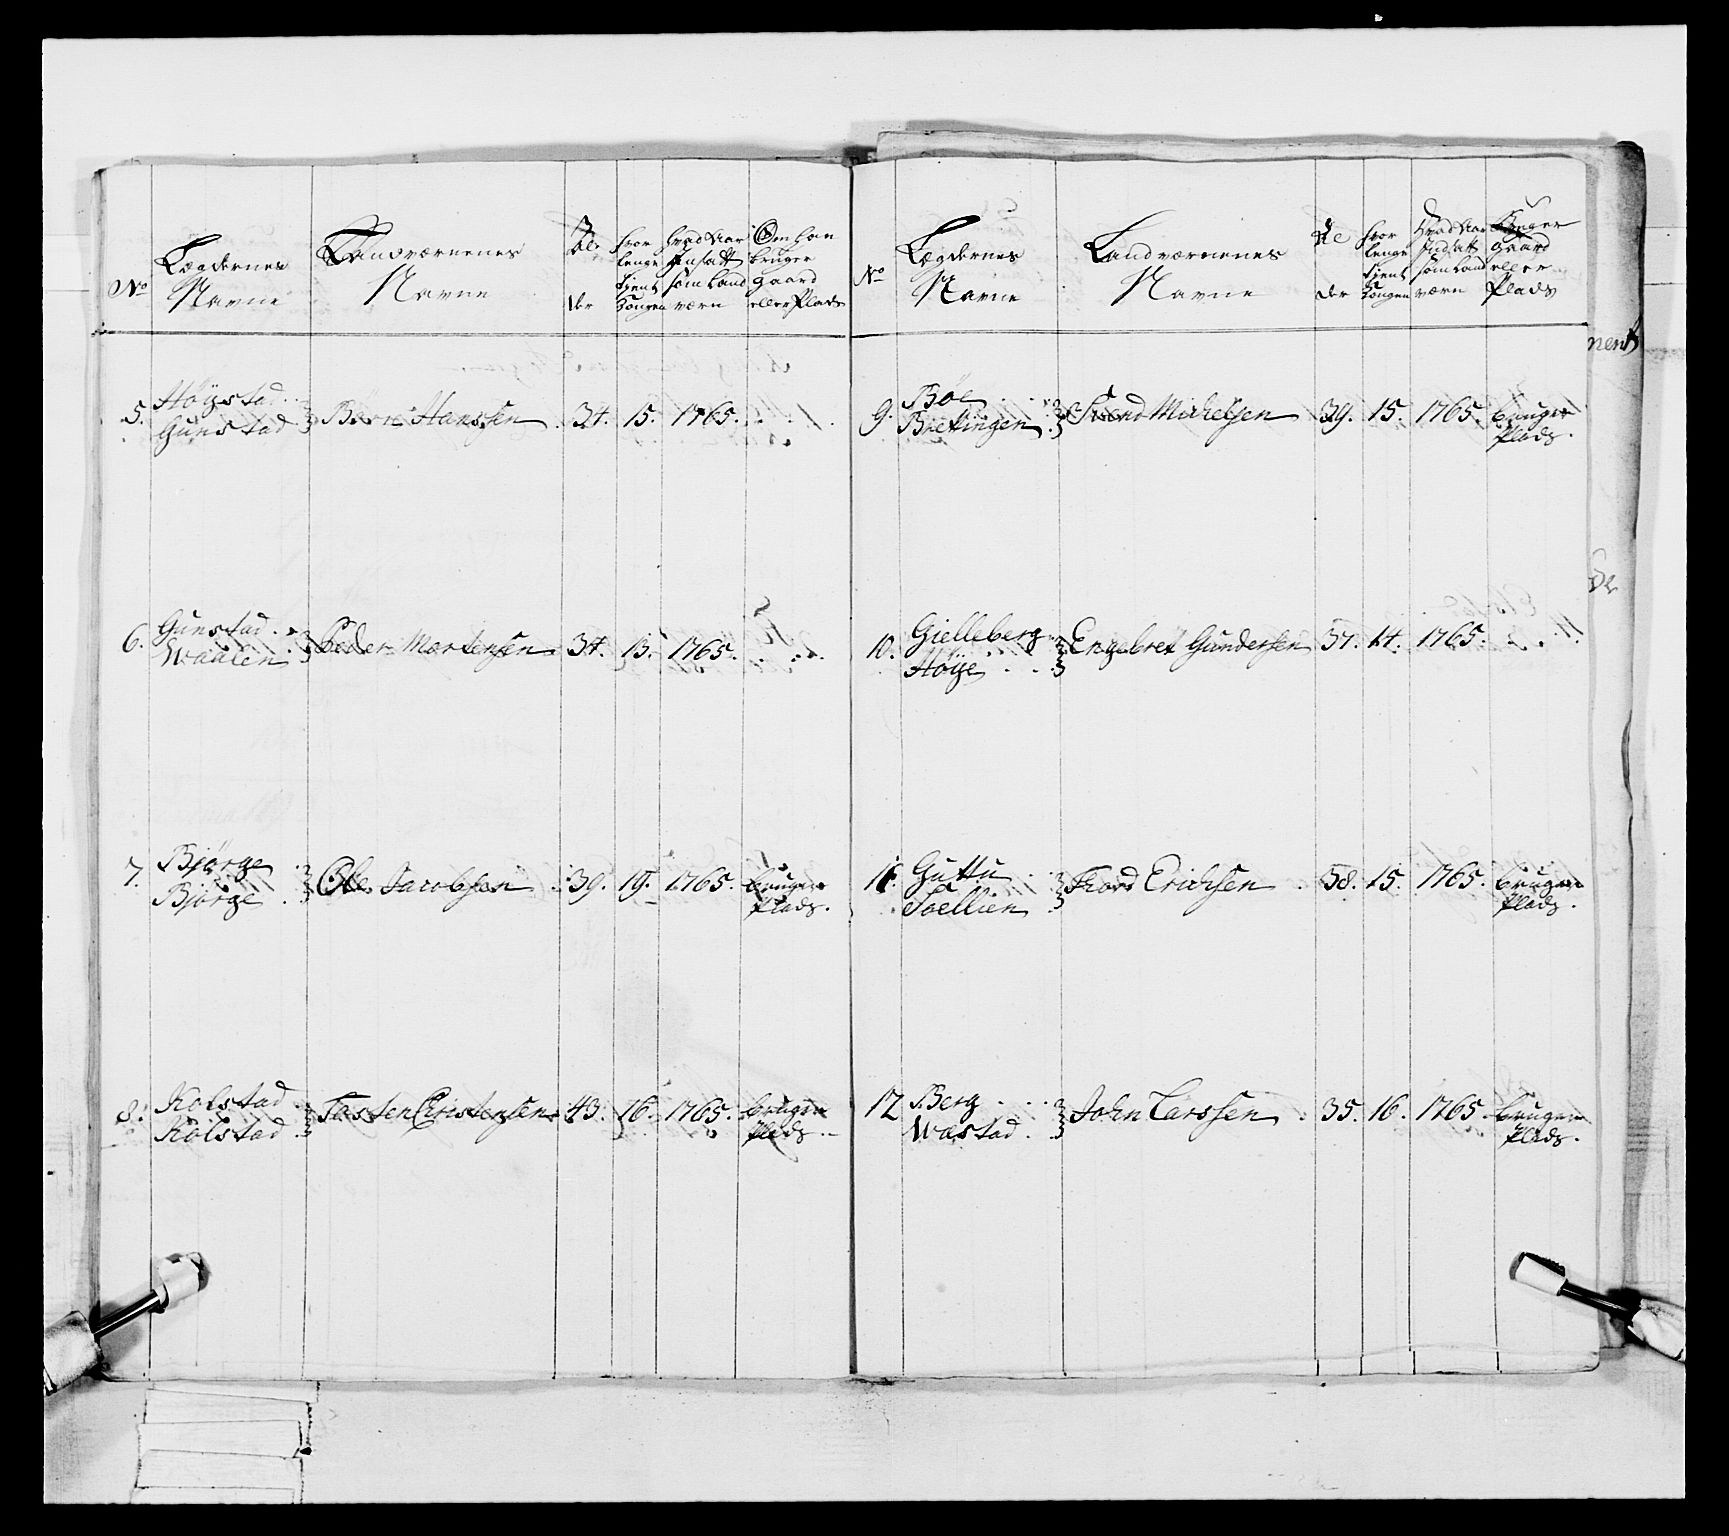 No
Lægdernes
Navne
Landværnenes
Navne
Al-
der
hvor
lenge
tient
Kongen
hvad Aar
Indsatt
som Land
værn
Om han
bruger
gaard
eller Plads
5. Höystad
Gunstad Hanssen 34. 15. 1765.
6. Gunstad
Waalen Peder Mortensen 34. 13. 1765.
7. Bjørge
Bjørge Ole Jacobsen 39. 19. 1765. bruger
Plads.
8. Kolstad
Kolstad Tosten Christensen 43. 16. 1765. bruger
Plads.
No
Lægdernes
Navne
Landværnenes
Navne
Al
der
hvor
lenge
tient
Kongen
Hvad Aar
Indsatt
som Land
værn
Bruger
gaard
eller
Plads
9. Böe
Brettingen Svend Michelsen 39. 15. 1765. bruger
Plads.
10. Gielleberg
Höye Engebret Gundersen 37. 14. 1765.
11. Guttu
Sællien Thord Erichsen 38. 15. 1765. bruger
Plads.
12 Berg
Wastad John Larssen 35. 16. 1765 bruger
Plads.